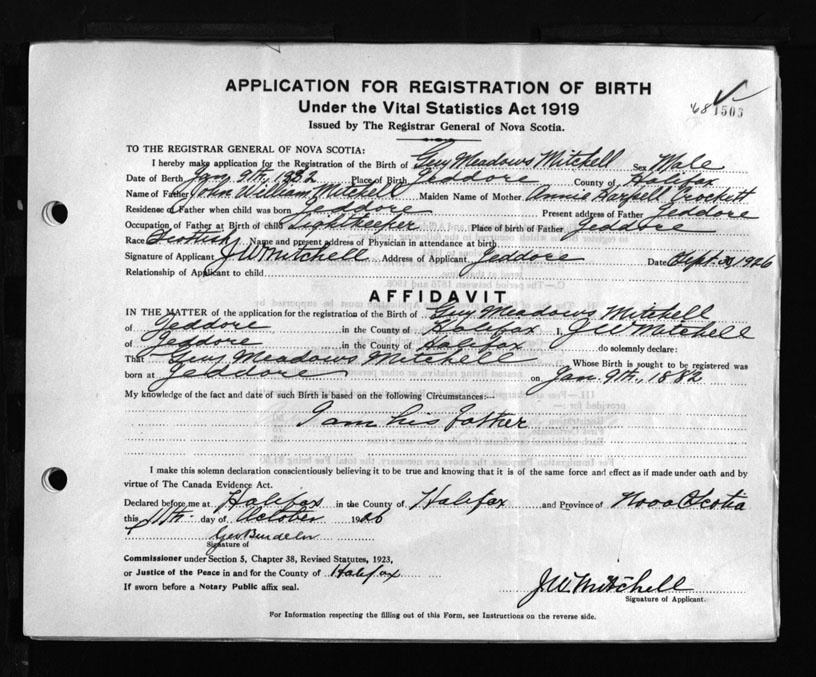 APPLICATION FOR REGISTRATION OF BIRTH
Under the Vital Statistics Act 1919
Issued by The Registrar General of Nova Scotia.
'68 1503
TO THE REGISTRAR GENERAL OF NOVA SCOTIA:
I hereby make application for the Registration of the Birth of Guy Meadows Mitchell Sex Male
Date of Birth Jan. 9th, 1882 Place of Birth Jeddore County of Halifax
Name of Father John William Mitchell Maiden Name of Mother Annie Harpell Crockett
Residence of Father when child was born Jeddore Present address of Father Jeddore
Occupation of Father at Birth of child Lightkeeper Place of birth of Father Jeddore
Race Scottish Name and present address of Physician in attendance at birth
Signature of Applicant J W Mitchell Address of Applicant Jeddore Date Sept. 1926
Relationship of Applicant to child
AFFIDAVIT
IN THE MATTER of the application for the registration of the Birth of Guy Meadows Mitchell
of Jeddore in the County of Halifax I, J W Mitchell
of Jeddore in the County of Halifax do solemnly declare:
That Guy Meadows Mitchell Whose Birth is sought to be registered was
born at Jeddore on Jan. 9th, 1882
My knowledge of the fact and date of such Birth is based on the following Circumstances:—
I am his father
I make this solemn declaration conscientiously believing it to be true and knowing that it is of the same force and effect as if made under oath and by
virtue of The Canada Evidence Act.
Declared before me at Halifax in the County of Halifax and Province of Nova Scotia
this 11th day of October 19
Signature of
Commissioner under Section 5, Chapter 38, Revised Statutes, 1923,
or Justice of the Peace in and for the County of Halifax
If sworn before a Notary Public affix seal.
J.W. Mitchell
Signature of Applicant.
For Information respecting the filling out of this Form, see Instructions on the reverse side.